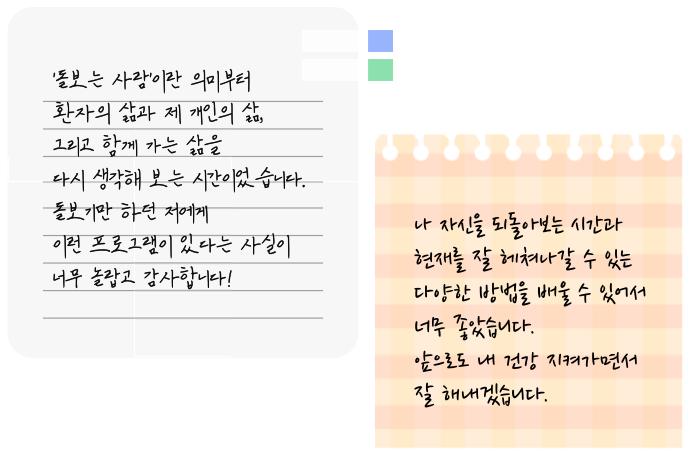 '돌보는 사람'이란 의미부터
환자의 삶과 제 개인의 삶,
그리고 함께 가는 삶을
다시 생각해 보는 시간이었습니다.
돌보기만 하던 저에게
이런 프로그램이 있다는 사실이
너무 놀랍고 감사합니다!
나 자신을 되돌아보는 시간과
현재를 잘 헤쳐나갈 수 있는
다양한 방법을 배울 수 있어서
너무 좋았습니다.
앞으로도 내 건강 지켜가면서
잘 해내겠습니다.